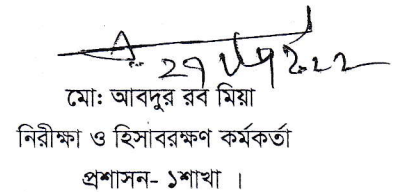 মো: আবদুর রব মিয়া
নিরীক্ষা ও হিসাবরক্ষণ কর্মকর্তা
প্রশাসন- ১শাখা ।